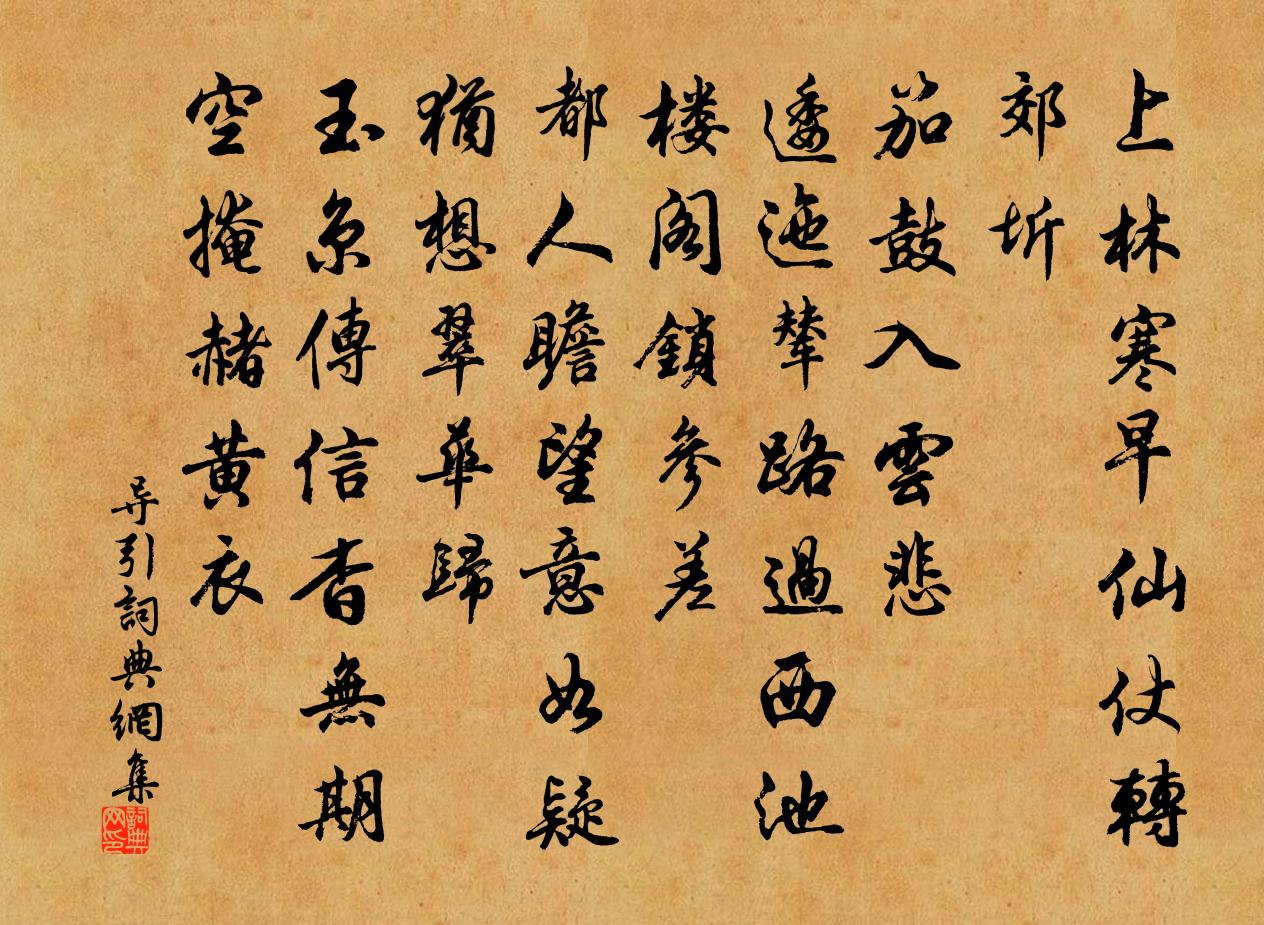 上林寒早仙仗轉
郊圻
笳鼓入雲悲
逶迤輦路過西池
楼阁鎖參差
都人瞻望意如疑
猶想翠華歸
玉京傳信杳無期
空掩赭黃衣
导引詞典網集
詞典网印